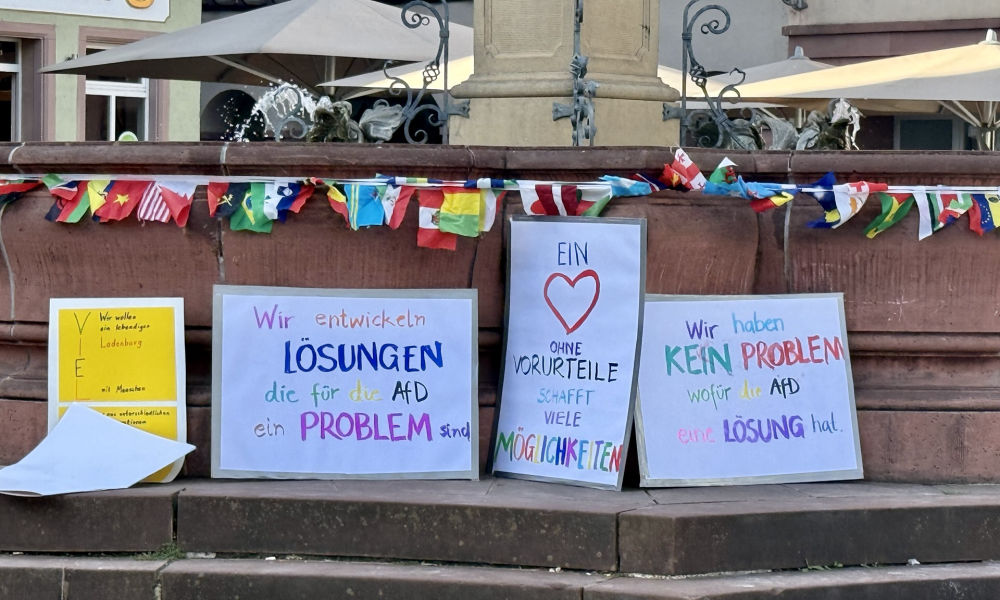 Wir wollen
ein lebendiges
Ladenburg
VIEL
mit Menschen
aus unterschiedlichen
Wir entwickeln
LÖSUNGEN
die für die AfD
ein PROBLEM sind
EIN
OHNE
VORURTEILE
SCHAFFT
VIELE
MÖGLICHKEITEN
Wir haben
KEIN PROBLEM
wofür die AfD
eine LÖSUNG hat.